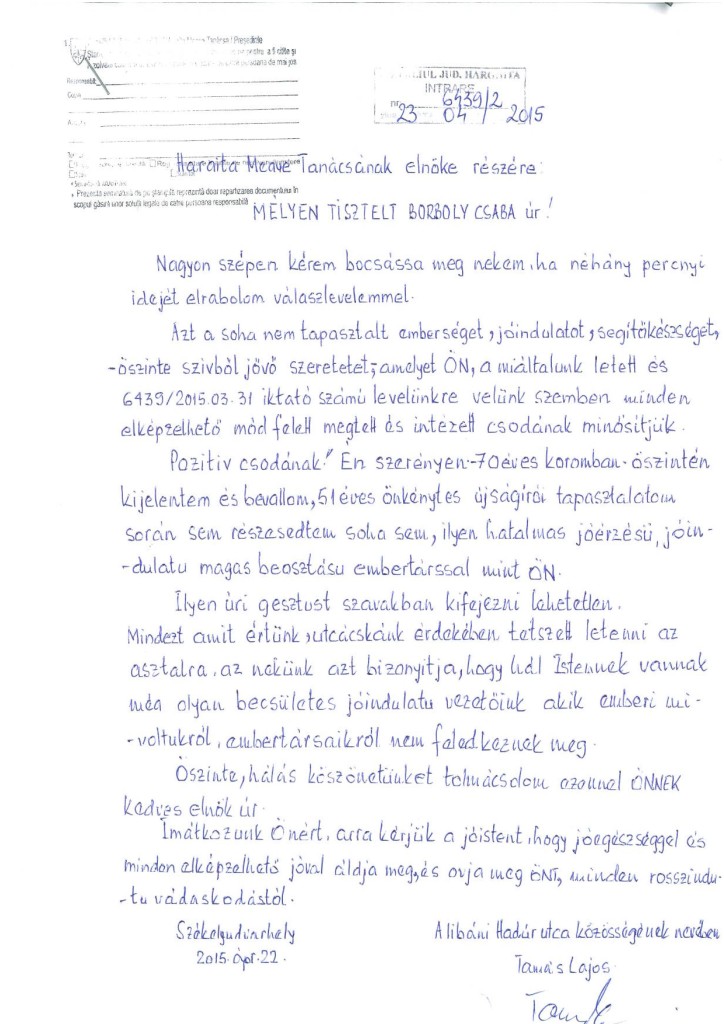 Președinte
CONSILIUL JUD. HARGHITA
INTRARE
nr. 6439/2
23 04 2015
Hargita Megye Tanácsának elnöke részére:
• Prezenta
scopul găsirii unor soluții legale de către persoana responsabilă
MÉLYEN TISZTELT BORBOLY CSABA úr!
Nagyon szépen kérem bocsássa meg nekem, ha néhány percnyi
idejét elrabolom válaszlevelemmel.
Azt a soha nem tapasztalt emberséget, jóindulatot, segítőkészséget,
-őszinte szívből jövő szeretetet, amelyet ÖN, a miáltalunk letett és
6439/2015.03.31 iktató számú levelünkre velünk szemben minden
elképzelhető mód felett megtett és intézett csodának minősítjük.
Pozitiv csodának! Én szerényen -70 éves koromban- őszintén
kijelentem és bevallom, 51 éves önkénytes újságírói tapasztalatom
során sem részesedtem soha sem, ilyen hatalmas jóérzésü, jóin-
-dulatu magas beosztásu embertárssal mint ÖN.
Ilyen úri gesztust szavakban kifejezni lehetetlen.
Mindezt amit értünk, utcácskánk érdekében tetszett letenni az
asztalra, az nekünk azt bizonyitja, hogy hál Istennek vannak
még olyan becsületes jóindulatu vezetőink akik emberi mi-
-voltukról, embertársaikról nem feledkeznek meg.
Őszinte, hálás köszönetünket tolmácsolom azonnal ÖNNEK
kedves elnök úr.
Imátkozunk Önért, arra kérjük a jóistent, hogy jóegészséggel és
minden elképzelhető jóval áldja meg, és ovja meg ÖNT, minden rosszindu-
-tu vádaskodástól.
Székelyudvarhely
2015. ápr. 22.
Alibáni Hadúr utca közösségének nevében
Tamás Lajos